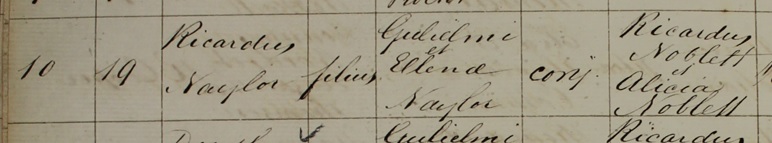 10 19 Ricardus Naylor filius Gulielmi et Ellenæ Naylor conj. Ricardus Noblett et Alicia Noblett
Gulielmi Ricardus